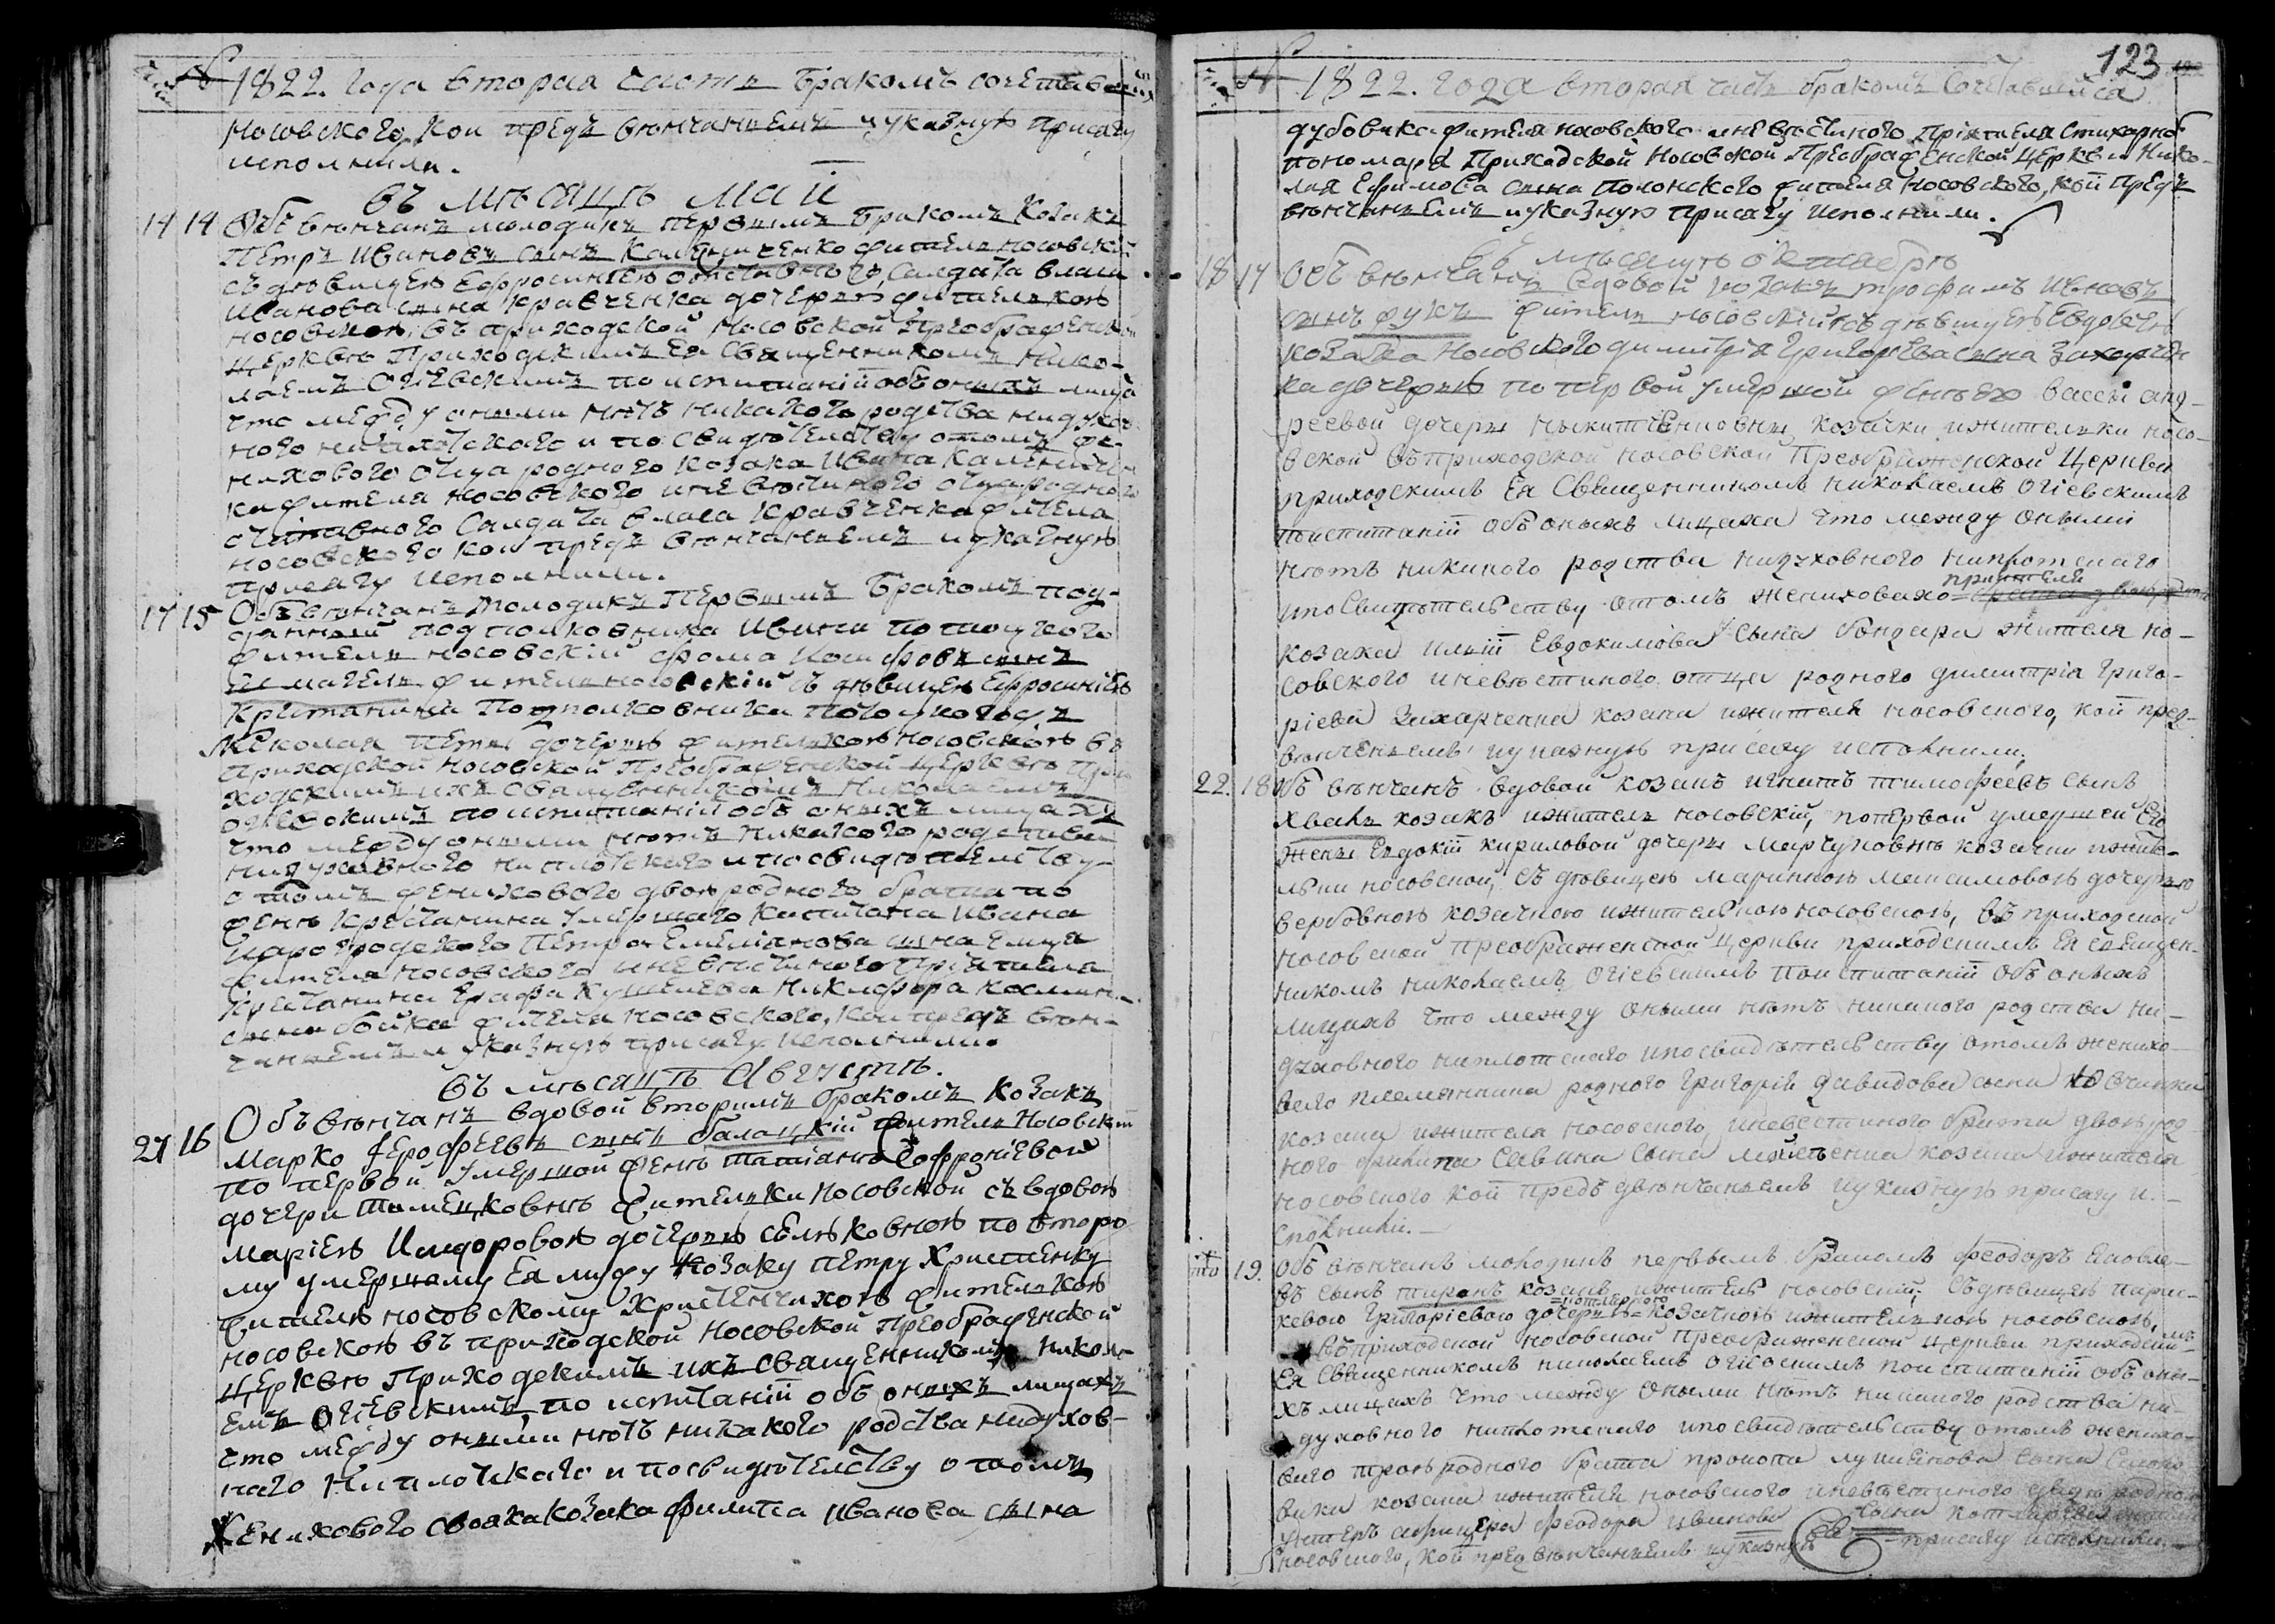 1822. года вторая часть браком сочетав
Носовского, кои предъ венчаньемъ и указную присягу
исполнили.
въ месяце май
14 14 Обвенчанъ молодикъ первымъ бракомъ козакъ
Петръ Ивановъ сынъ Калениченко житель носовский
съ девицею Ефросиниею отставного солдата Власа
Иванова сына Кравченка дочерью жителькою
носовскою въ приходской Носовской Преображенской
церкве приходскимъ ея священникомъ Нико-
лаемъ Огіевскимъ по испитаній объ оныхъ лицахъ
что между оными нетъ никакого родства нидухов
ного ниплотского и по свидетелству отомъ же-
нихового отца родного козака Ивана Калениченка
жителя носовского и невестиного отца родного
отставного солдата Власа Кравченка жителя
носовского кои предъ венчаньемъ и указную
присягу исполнили.
17 15 Обвенчанъ молодикъ первымъ бракомъ под-
данный подполковника Ивана Потоцкого
житель носовскій Фома Иосифовъ сынъ
житель носовскій съ девицею Ефросиніею
крестянина подполковника Потоцкого
Николая дочерью жителькою носовскою въ
приходской Носовской Преображенской церкве при
ходскимъ ихъ священникомъ Николаемъ
Огіевскимъ по испитаній объ оныхъ лицахъ
что между оными нетъ никакого родства
нидуховного ниплотского и по свидетелству
о томъ женихового двоюродного брата по
жене крестянина умершаго капитана Ивана
Петра Емелianова сына
жителя носовского и невестиного пріятеля
крестянина Графа Кушелева Никифора
сына Бойка жителя носовского, кои предъ вен-
чаньемъ и указную присягу исполнили.
въ месяце Августе.
27 16 Объвенчанъ вдовой вторимъ бракомъ козакъ
Марко Ерофеевъ сынъ Балацкій житель Носовскій
по первой умершой жене Татіане Софроніевой
дочери жительки носовской съ вдовою
Маріею Исидоровою дочерью Сельковною по второ
му умершему ея мужу козаку Петру Христенку
жителю носовскому Христенчихою жителькою
носовскою въ приходской Носовской Преображенской
церкве приходскимъ ихъ священникомъ Никола-
емъ Огіевскимъ, по испитаній объ оныхъ лицахъ
что между оными нетъ никакого родства нидухов-
наго ниплотскаго и посвидетелству о томъ
женихового свояка козака Филипа Иванова сына
123
1822. года вторая часть бракомъ сочетавшихся
Дубовика жителя носовского и невестиного пріятеля стихарного
пономаря приходской Носовской Преображенской церкви Нико-
лая Ефимова сына Полонского жителя носовского, кои предъ
венчаньемъ и указную присягу исполнили.
въ месяце октябре
18 17 Объвенчанъ вдовой козакъ Трофимъ Ивановъ
сынъ Жукъ житель носовскій съ девицею Евдокіею
козака носовского Димитрія Григорьева сына Захарчен
ка дочерью по первой умершой жене его Вассы Анд-
реевой дочери Никитченковны козачки и жительки носо-
вской въ приходской носовской Преображенской церкви
приходскимъ ея священникомъ Николаемъ Огіевскимъ
поиспитаній объ оныхъ лицахъ что между оными
нетъ никакого родства нидуховного ниплотскаго
приятеля
ипосвидетельству отомъ жениховаго
козака Иліи Евдокимова сына Бондара жителя но-
совского иневестиного отца родного Димитрія Григо-
ріева Захарченка козака и жителя носовского, кои пред-
венченьемъ иуказную присягу исполнили.
22. 18 Объвенчанъ вдовой козакъ Игнатъ Тимофеевъ сынъ
Хваль козакъ и житель носовскій, попервой умершей его
жены Евдокіи Кириловой дочеры Марчуковны козачки и жите-
льки носовской, съ девицею Мариною Максимовою дочерью
Вербовною козачкою и жителькою носовскою, въ приходской
носовской Преображенской церкви приходскимъ ея священ-
никомъ Николаемъ Огіевскимъ поиспитаній объ оныхъ
лицахъ что между оными нетъ никакого родства ни-
духовного ниплотскаго ипосвидетельству отомъ женихо-
вого племянника родного Григорія Давидова сына
козака и жителя носовского, иневестиного брата двоюрод
ного Филипа Савина сына козака и жителя
носовского кои предъ венчаньемъ иуказную присягу и-
сполнили.
19. Объвенчанъ молодикъ первымъ бракомъ Феодоръ Яковле-
въ сынъ Тиранъ козакъ и житель носовскій, съ девицею Парас-
кевою Григоріевою дочерью козачкою и жителькою носовскою,
въ приходской носовской Преображенской церкви приходским
ея священникомъ Николаемъ Огіевскимъ поиспитаній объ оны-
хъ лицахъ что между оными нетъ никакого родства ни-
духовного ниплотскаго ипосвидетельству отомъ женихо-
ваго троюродного брата Прокопа сына
козака и жителя носовского иневестиного родного
унтеръ офицера Феодора Иванова сына
носовского, кои предвенчаньемъ иуказную присягу исполнили.